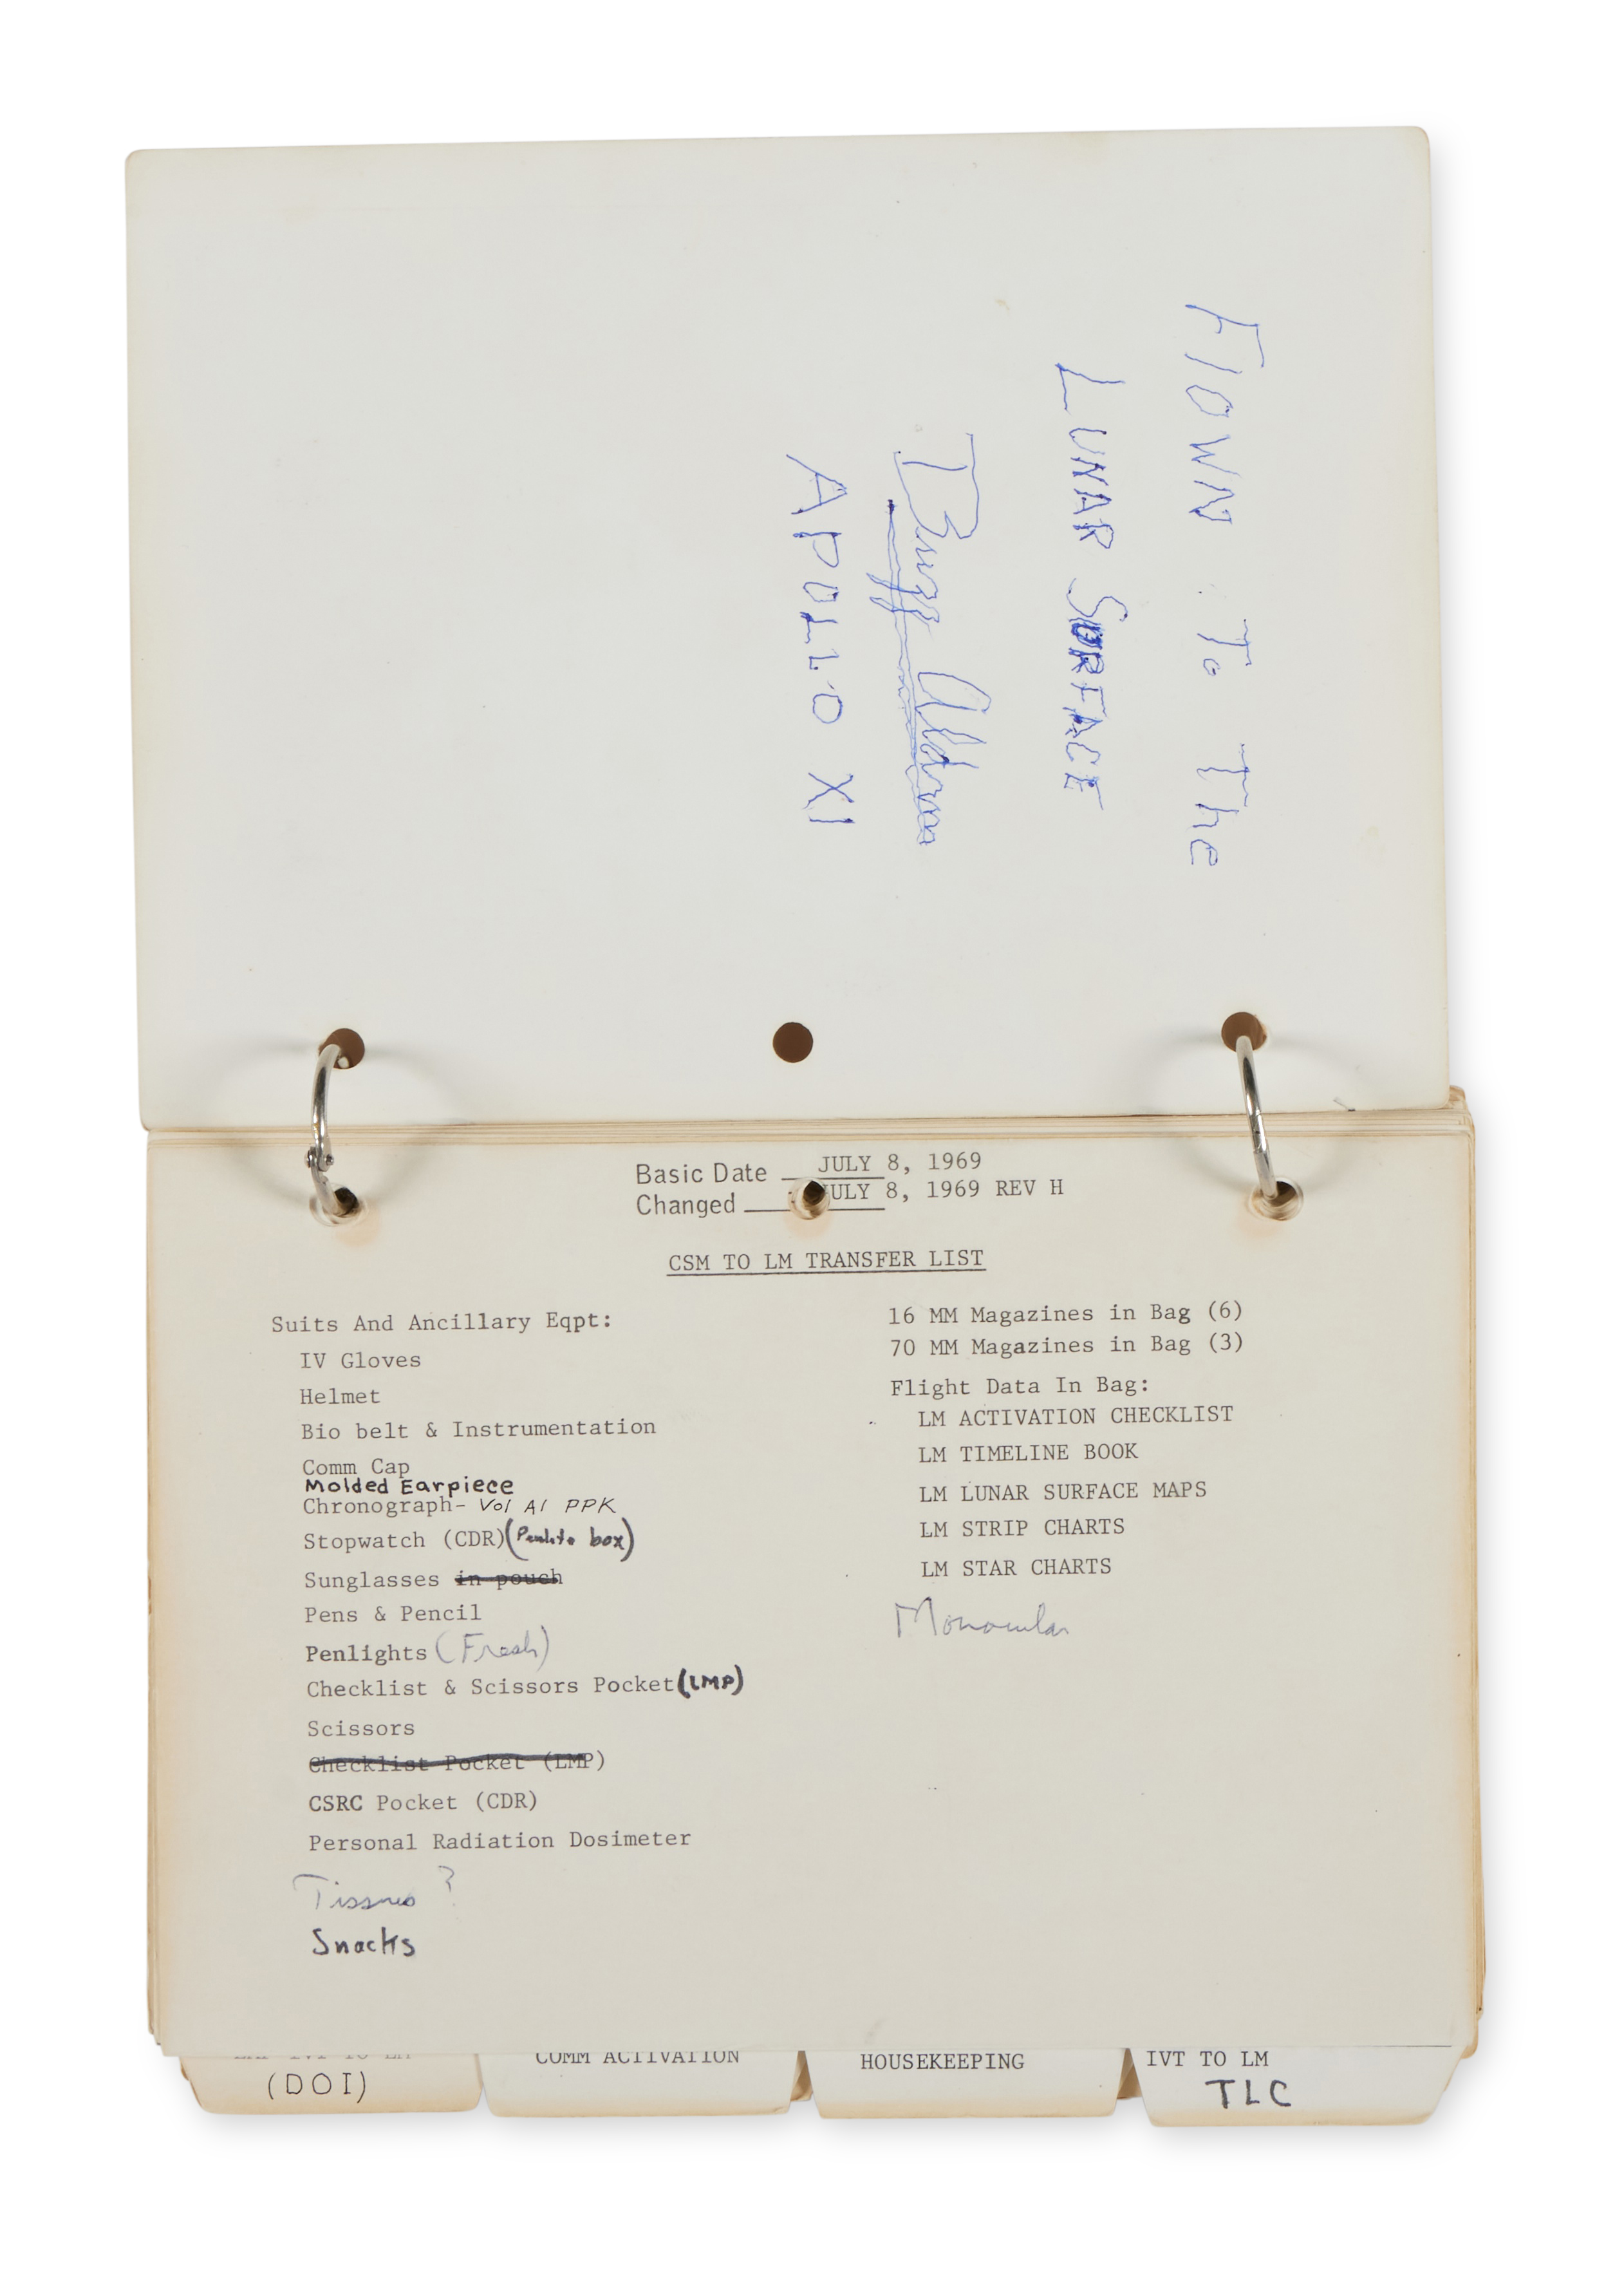 Flown To The
LUNAR SURFACE
Buzz Aldrin
APOLLO XI
Basic Date JULY 8, 1969
Changed JULY 8, 1969 REV H
CSM TO LM TRANSFER LIST
Suits And Ancillary Eqpt:
IV Gloves
Helmet
Bio belt & Instrumentation
Comm Cap
Molded Earpiece
Chronograph- Vol A1 PPK
Stopwatch (CDR) (Penlite box)
Sunglasses in pouch
Pens & Pencil
Penlights (Fresh)
Checklist & Scissors Pocket (LMP)
Scissors
Checklist Pocket (LMP)
CSRC Pocket (CDR)
Personal Radiation Dosimeter
Tissues ?
Snacks
16 MM Magazines in Bag (6)
70 MM Magazines in Bag (3)
Flight Data In Bag:
LM ACTIVATION CHECKLIST
LM TIMELINE BOOK
LM LUNAR SURFACE MAPS
LM STRIP CHARTS
LM STAR CHARTS
Monocular
(DOI)
COMM ACTIVATION
HOUSEKEEPING
IVT TO LM
TLC